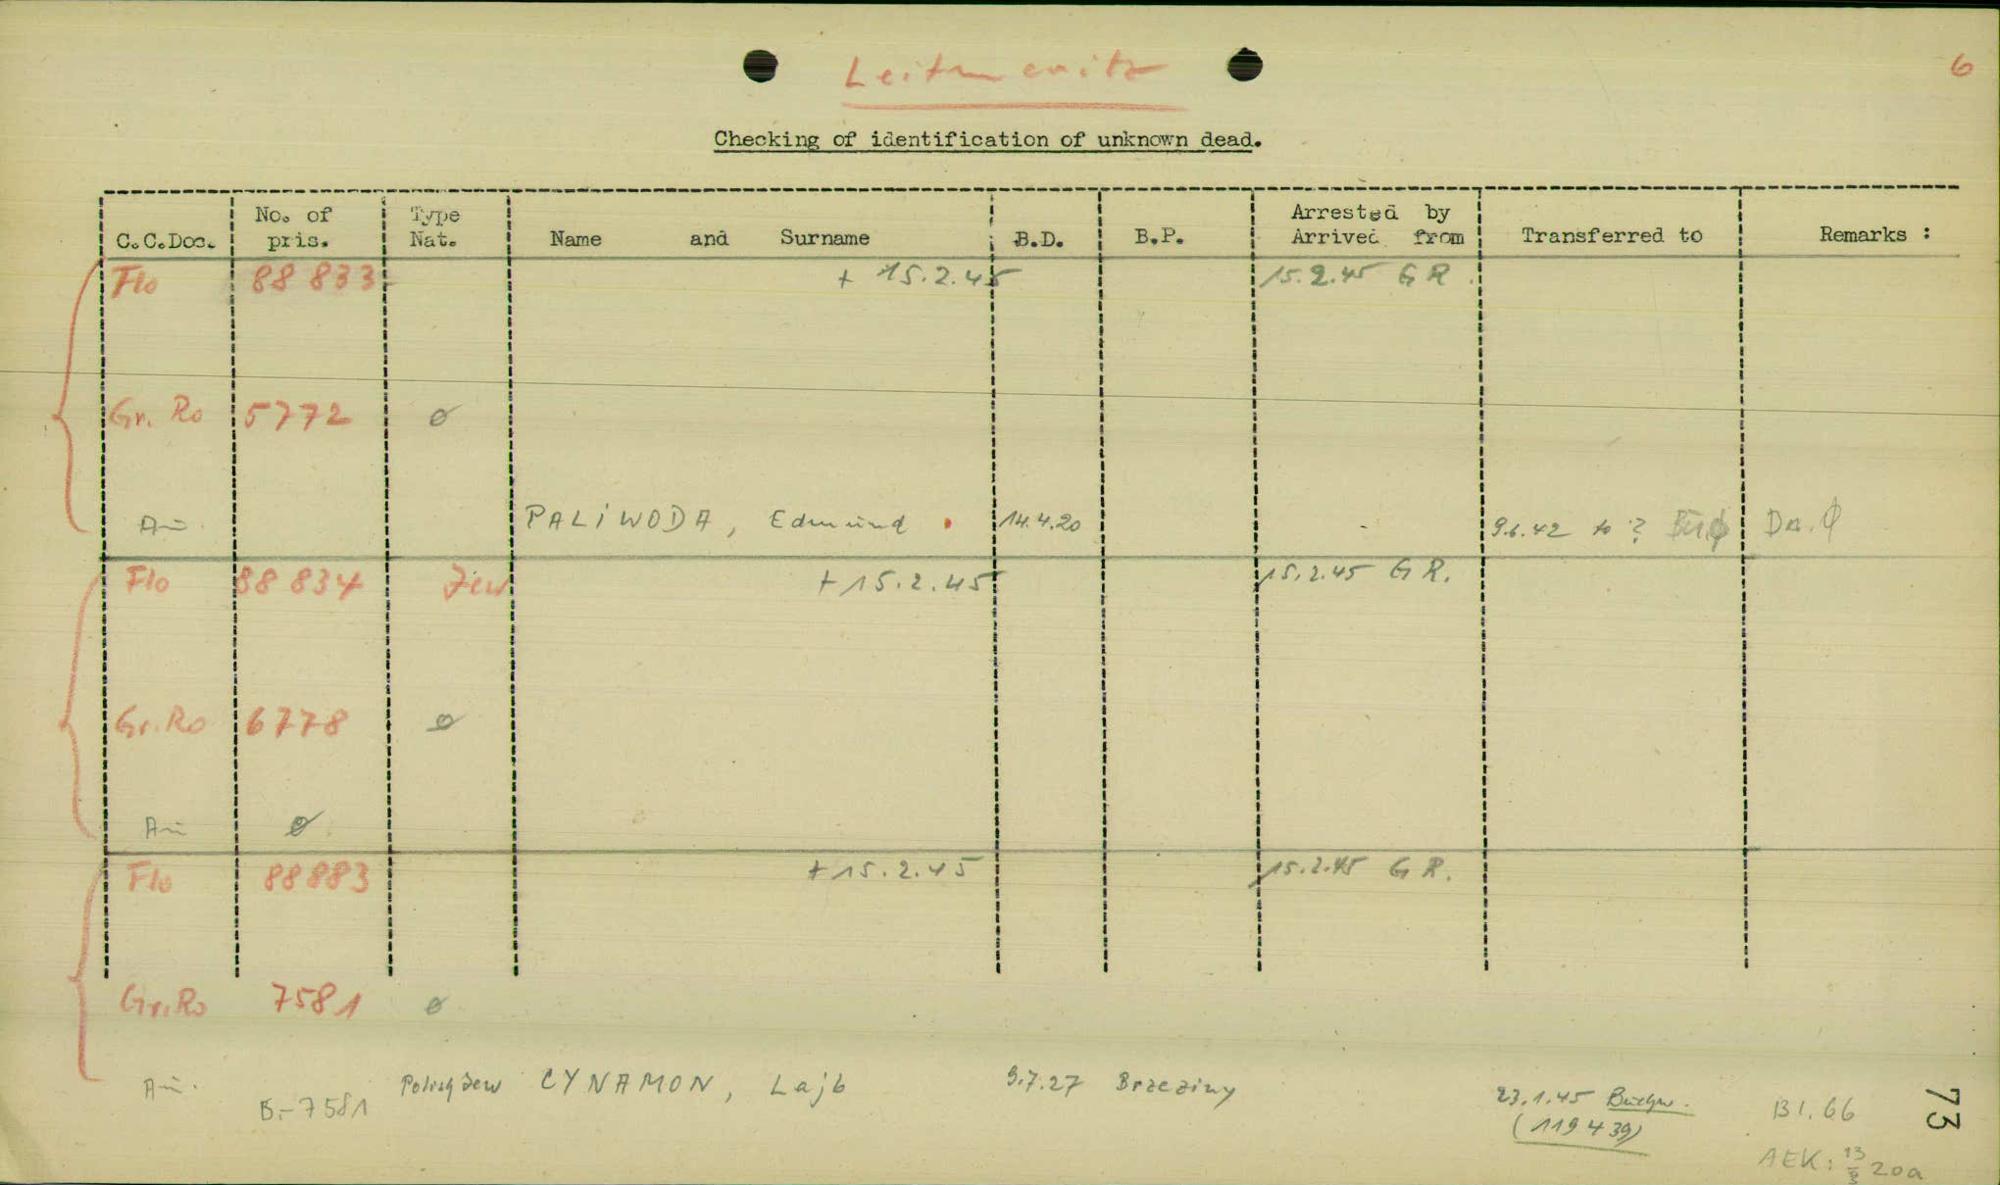 Leitmeritz
6
Checking of identification of unknown dead.
C.C.Doc. No. of pris. Type Nat. Name and Surname B.D. B.P. Arrested by Arrived from Transferred to Remarks :
Flo 88 833 + 15.2.45 15.2.45 G R.
Gr. Ro 5772 ø
Au. PALIWODA, Edmund 14.4.20 9.6.42 to ? Ø
Flo 88 834 Jew + 15.2.45 15.2.45 G R.
Gr. Ro 6778 ø
Au ø
Flo 88883 + 15.2.45 15.2.45 G R.
Gr. Ro 7581 ø
Au. B-7581 Polish Jew CYNAMON, Lajb 9.7.27 Brzeziny 23.1.45 Buchw. Bl. 66
(119439)
AEK: 20a
73